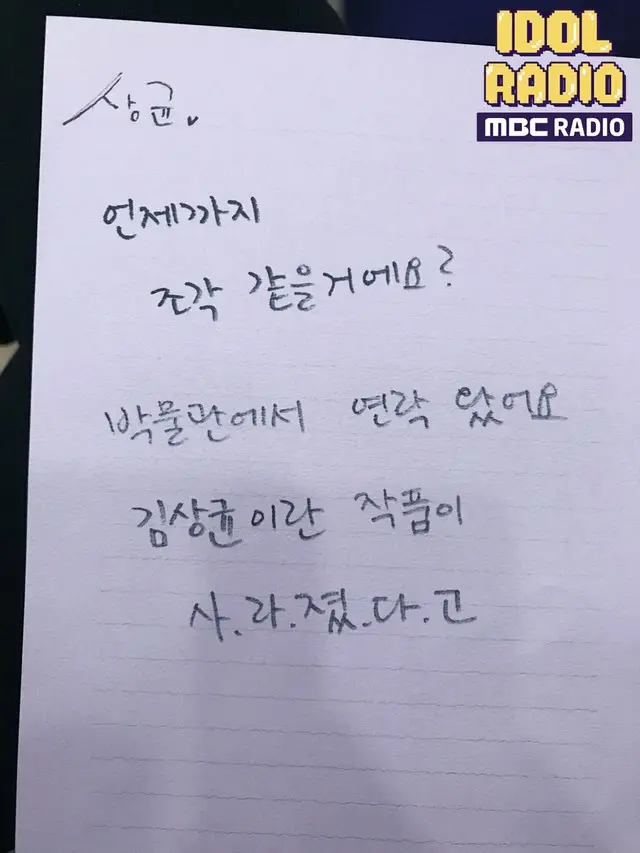 IDOL
RADIO
MBC RADIO
상균
언제까지
조각 같을거에요?
박물관에서 연락 왔어요
김상균이란 작품이
사.라.졌.다.고